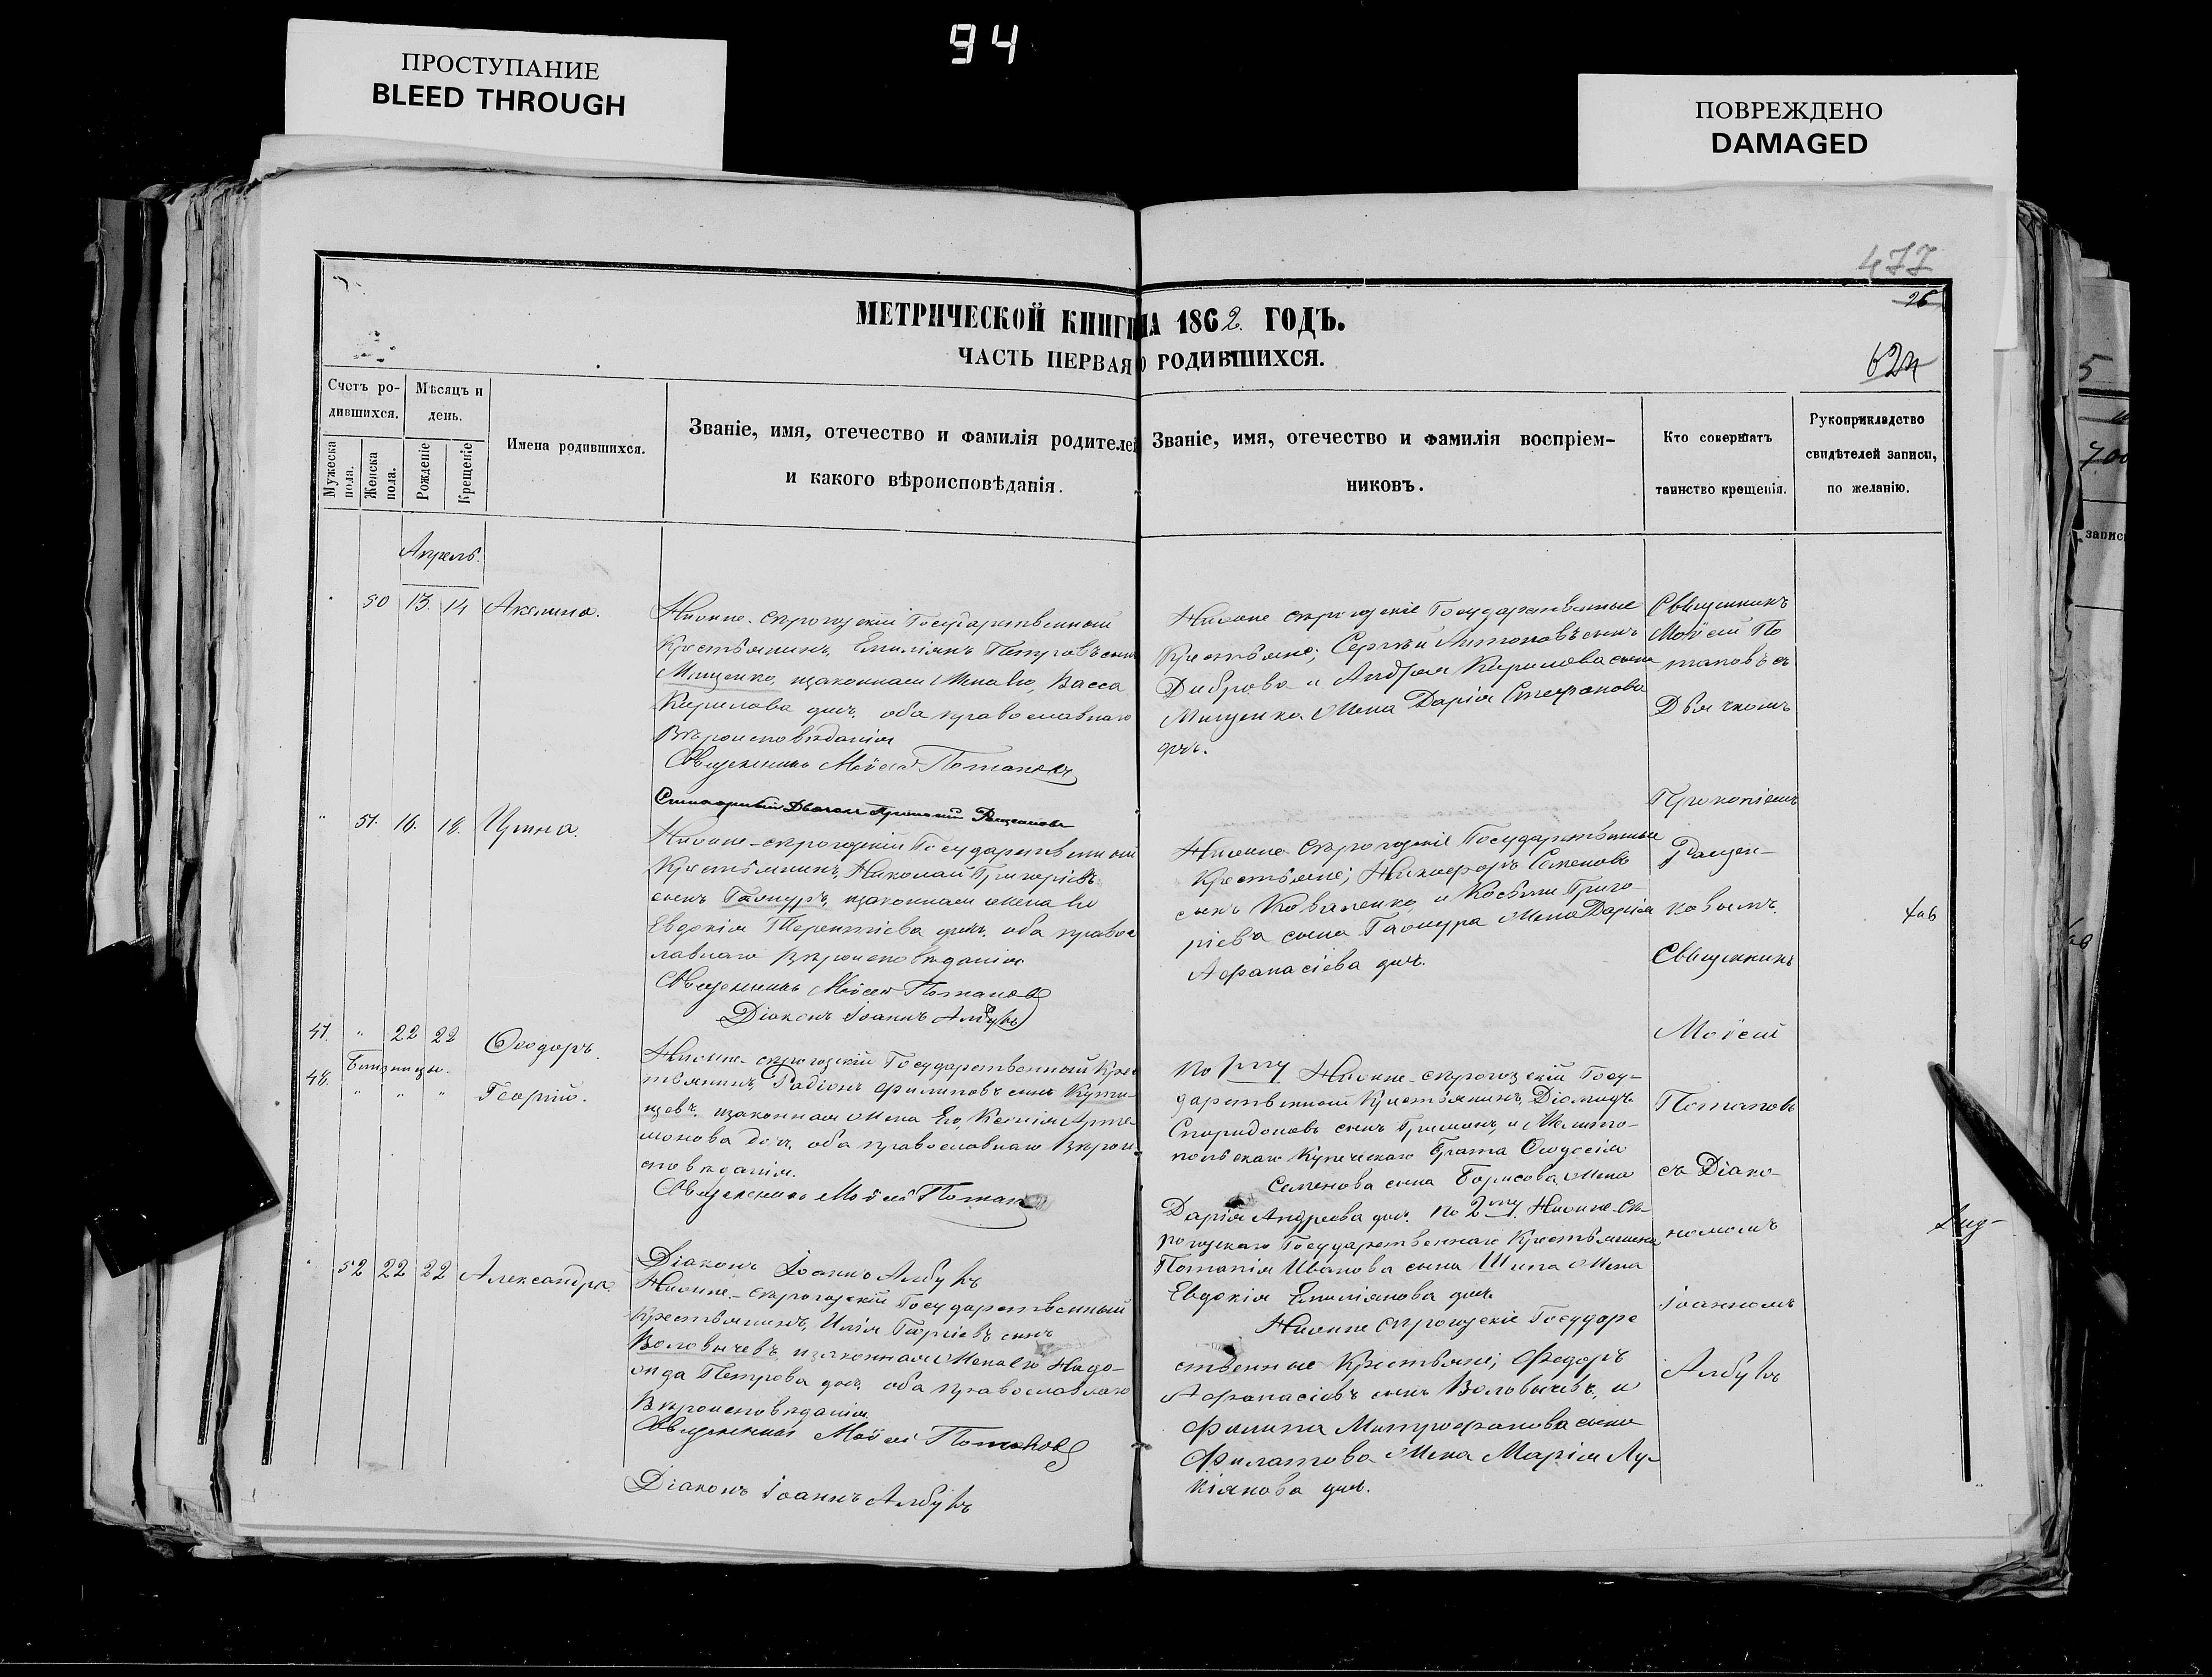 94
ПРОСТУПАНИЕ
BLEED THROUGH
ПОВРЕЖДЕНО
DAMAGED
477
26
МЕТРИЧЕСКОЙ КНИГИ НА 1862 ГОДЪ.
ЧАСТЬ ПЕРВАЯ О РОДИВШИХСЯ.
Счетъ ро-
дившихся.
Мужеска пола.
Женска пола.
Мѣсяцъ и
день.
Рожденіе
Крещеніе
Имена родившихся.
Званіе, имя, отечество и фамилія родителей
и какого вѣроисповѣданія.
Званіе, имя, отечество и фамилія воспріем-
никовъ.
Кто совершатъ
таинство крещенія.
Рукоприкладство
свидѣтелей записи,
по желанію.
Апрель.
50 13 14 Акилина.
Нижне-сѣрогозскій Государственный
Крестьянинъ, Емиліянъ Петровъ сынъ
Мищенко, изаконная Жена его, Васса
Кирилова дочь. оба православнаго
Вѣроисповѣданія
Священникъ Моѵсей Потаповъ
Нижне сѣрогозскіе Государственные
Крестьяне; Сергѣй Антоновъ сынъ
Диброва и Андрея Кирилова сына
Мищенка Жена Дарія Стефанова
дочь.
Священникъ
Моѵсей По
таповъ съ
Дьячкомъ
Прокопіемъ
" 51. 16. 18. Ирина.
Нижне-сѣрогозскій Государственный
Крестьянинъ, Николай Григоріевъ
сынъ изаконная жена его
Евдокія Терентіева дочь. оба правос
лавнаго Вѣроисповѣданія
Священникъ Моѵсей Потаповъ
Діаконъ Іоаннъ
Нижне Сѣрогозскіе Государственные
Крестьяне; Никифоръ Семеновъ
сынъ Коваленко, и Косьмы Григо-
ріева сына Жена Дарія
Афанасіева дочь.
ковымъ.
Священникъ
Моѵсей
Потаповъ
съ Діако-
номъ
Іоанномъ
47. " 22 22 Ѳеодоръ.
Близнецы.
48. " " " Георгій.
Нижне-сѣрогозскій Государственный Крес
тьянинъ, Радіонъ Филиповъ сынъ
изаконная жена Его, Ксенія Арте-
монова доч. оба православнаго Вѣроис
повѣданія.
Священникъ Моѵсей Потапов
Діаконъ Іоаннъ
По 1му Нижне-сѣрогозскій Госу-
дарственный Крестьянинъ, Діомидъ
Спиридоновъ сынъ и Мелито-
польскаго Купеческаго Брата Ѳеодосія
Семенова сына Борисова Жена
Дарія Андреева доч. По 2му Нижне-Сѣ-
рогозскаго Государственнаго Крестьянина
Потапія Иванова сына Шила Жена
Евдокія Емиліянова доч.
52 22 22 Александра.
Нижне-сѣрогозскій Государственный
Крестьянинъ, Илія Георгіевъ сынъ
Воловичевъ, изаконная Жена его Надѣ-
жда Петрова доч. оба православнаго
Вѣроисповѣданія
Священникъ Моѵсей Потаповъ
Діаконъ Іоаннъ
Нижне Сѣрогозскіе Государс
твенные Крестьяне; Федоръ
Афанасіевъ сынъ Воловичевъ, и
Филипа Митрофанова сына
Филатова Жена Марія Лу-
кіянова доч.